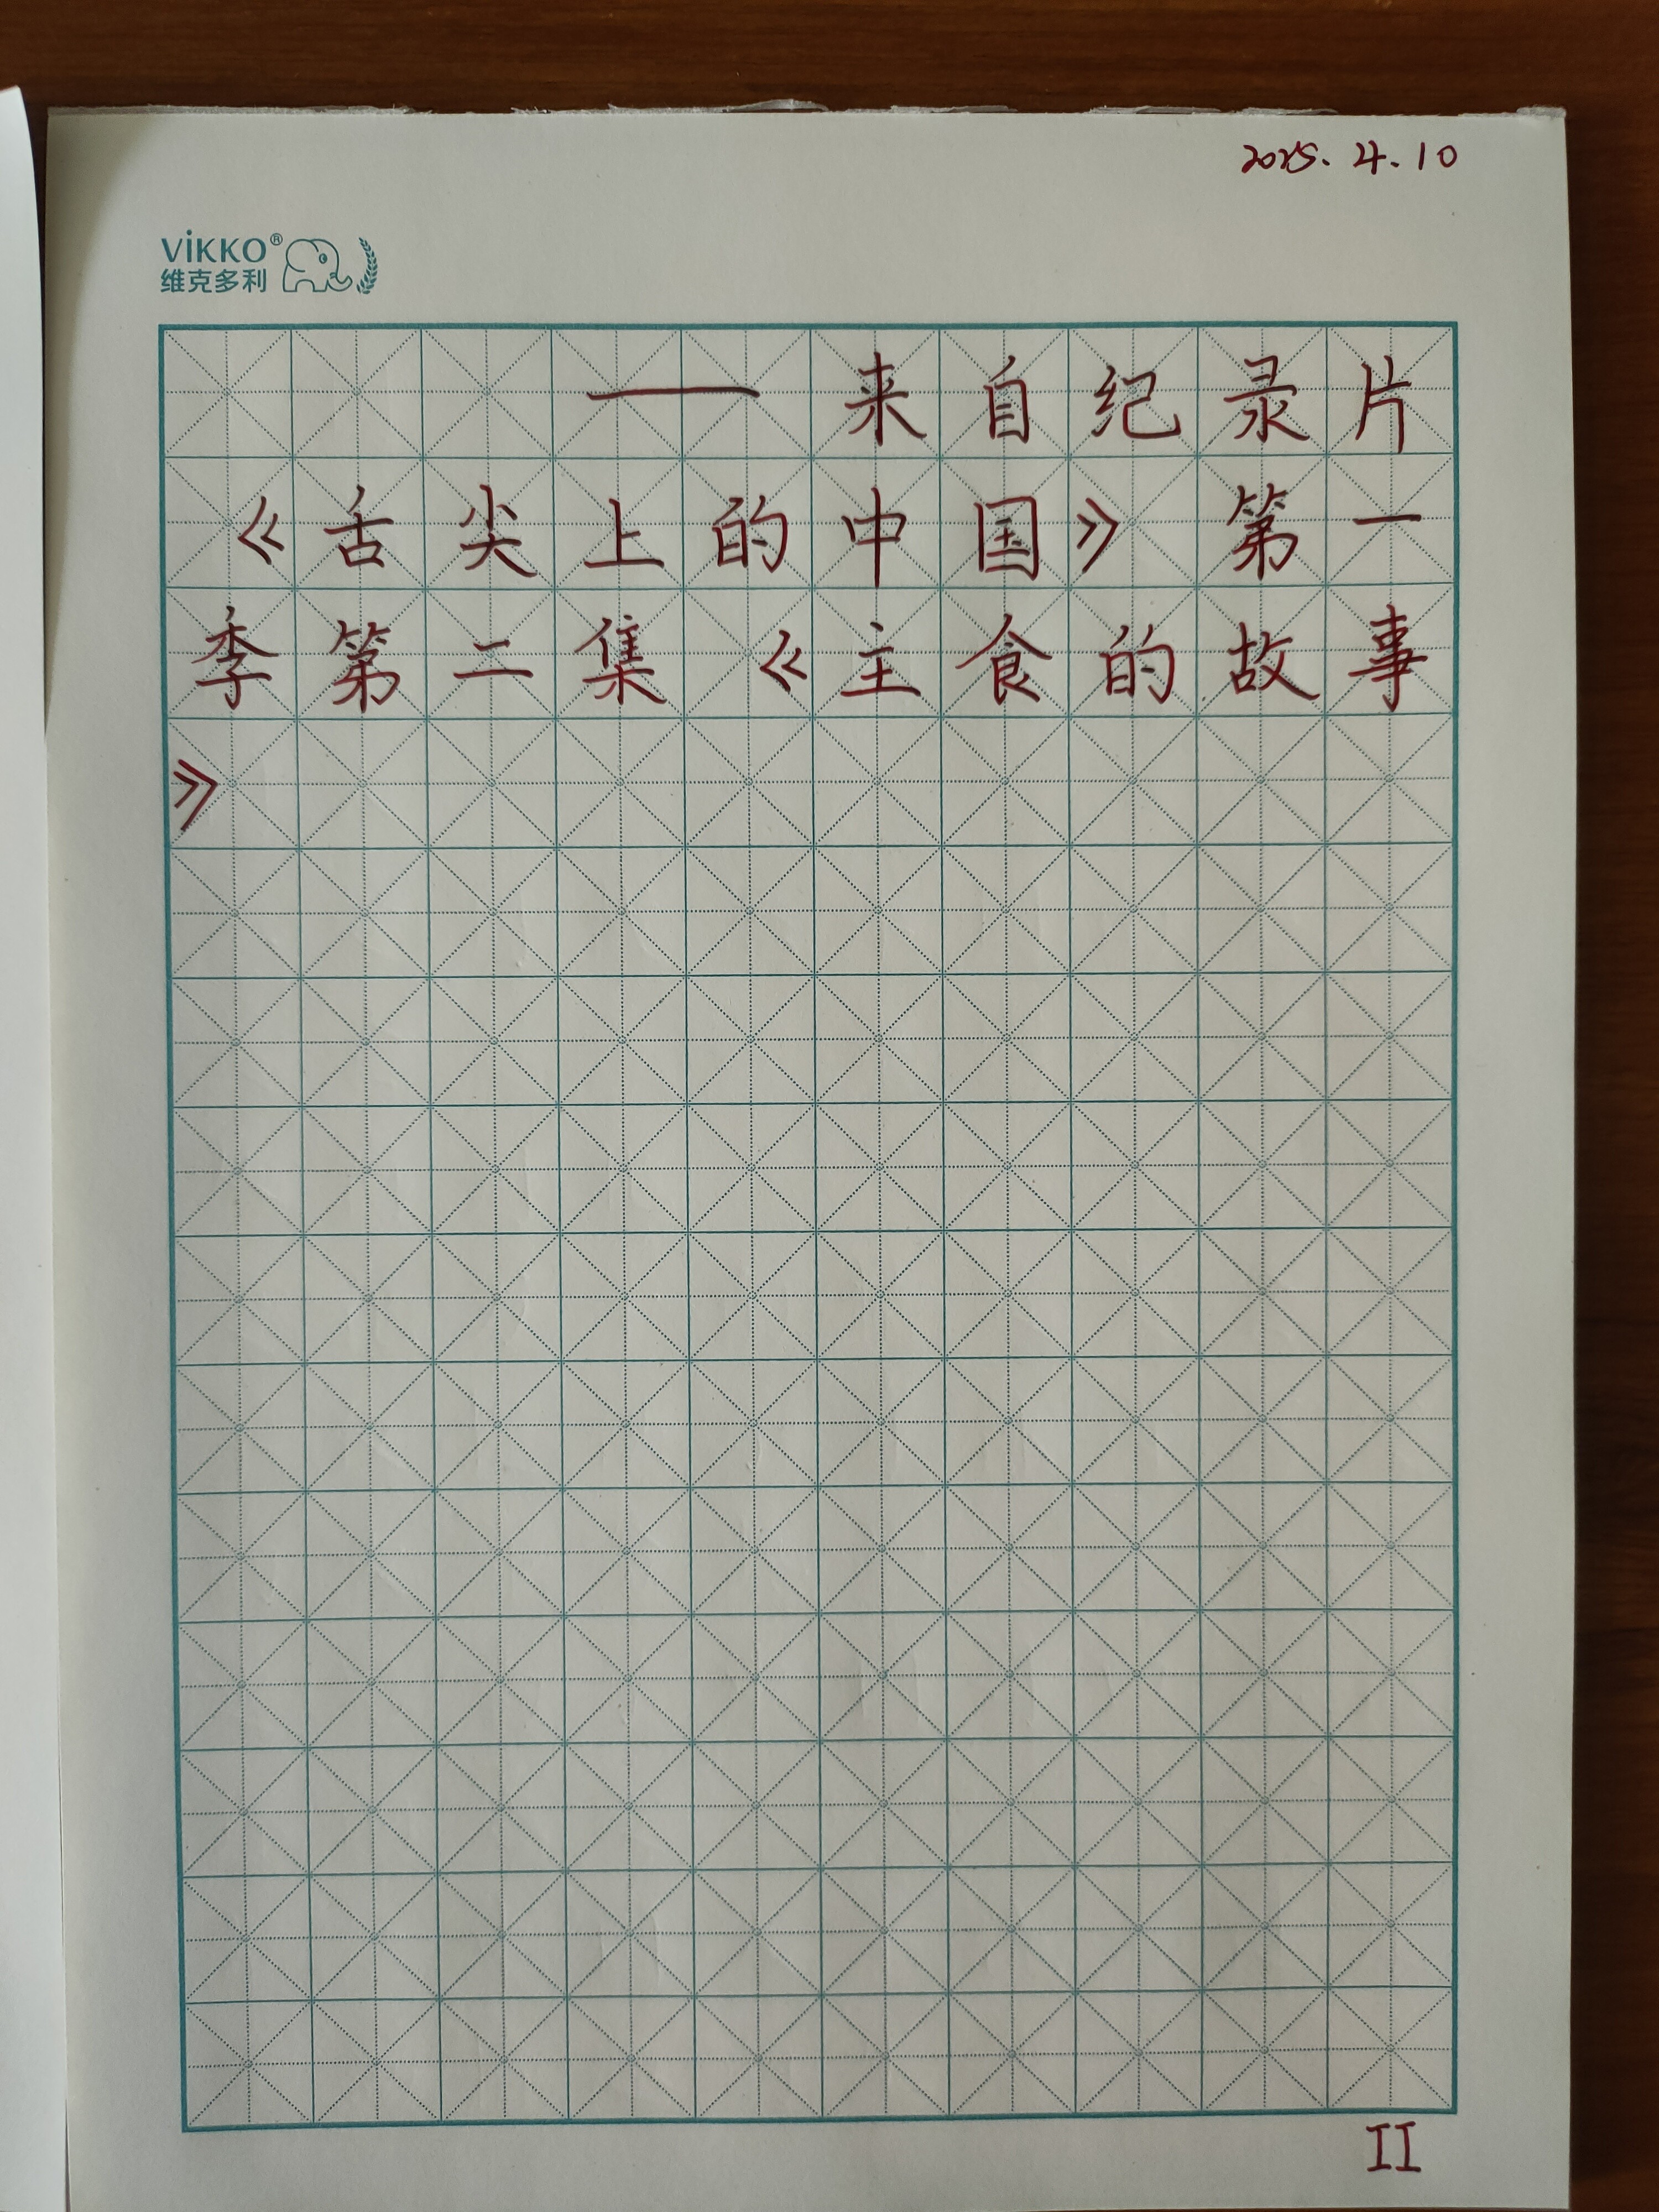 2025.4.10
ViKKO®
维克多利
——来自纪录片
《舌尖上的中国》第一
季第二集《主食的故事
》
II